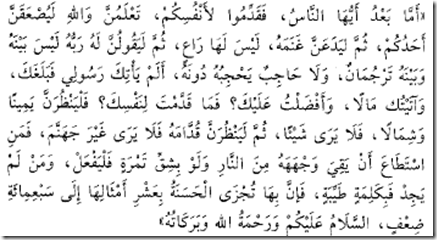 «أَمَّا بَعْدُ أَيُّهَا النَّاسُ، فَقَدِّمُوا لِأَنْفُسِكُمْ، تَعْلَمُنَّ وَاللهِ لَيُصْعَقَنَّ
أَحَدُكُمْ، ثُمَّ لَيَدَعَنَّ غَنَمَهُ، لَيْسَ لَهَا رَاعٍ، ثُمَّ لَيَقُولَنَّ لَهُ رَبُّهُ لَيْسَ بَيْنَهُ
وَبَيْنَهُ تَرْجُمَانٌ، وَلَا حَاجِبٌ يَحْجُبُهُ دُونَهُ، أَلَمْ يَأْتِكَ رَسُولِي فَبَلَغَكَ،
وَآتَيْتُكَ مَالًا، وَأَفْضَلْتُ عَلَيْكَ؟ فَمَا قَدَّمْتَ لِنَفْسِكَ؟ فَلْيَنْظُرَنَّ يَمِينًا
وَشِمَالًا، فَلَا يَرَى شَيْئًا، ثُمَّ لَيَنْظُرَنَّ قُدَّامَهُ فَلَا يَرَى غَيْرَ جَهَنَّمَ، فَمَنِ
اسْتَطَاعَ أَنْ يَقِيَ وَجْهَهُ مِنَ النَّارِ وَلَوْ بِشِقِّ تَمْرَةٍ فَلْيَفْعَلْ، وَمَنْ لَمْ
يَجِدْ فَبِكَلِمَةٍ طَيِّبَةٍ، فَإِنَّ بِهَا تُجْزَى الْحَسَنَةُ بِعَشْرِ أَمْثَالِهَا إِلَى سَبْعِمِائَةِ
ضِعْفٍ، السَّلَامُ عَلَيْكُمْ وَرَحْمَةُ اللهِ وَبَرَكَاتُهُ»